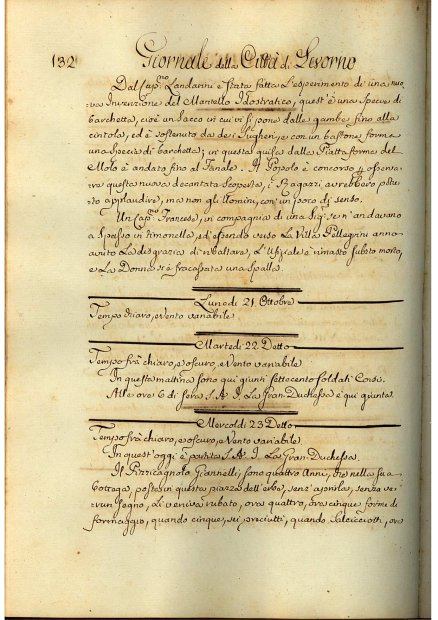 132 Giornale della Città di Livorno
Dal Cap.no Landanni è stata fatta l'esperimento di una nuo-
va Invenzione del Mantello Idostratico, quest'è una Specie di
barchetta, cioè un Sacco in cui vi si pone dalle gambe fino alla
cintola, ed è sostenuto da dei Sugheri, e con un bastone forma
una Specie di barchetta; in questa guisa dalla Piatta forma del
Molo è andato fino al Fanale. Il Popolo è concorso
questa nuova decantata Scoperta, i Ragazzi avrebbero potu-
to applaudire, ma non gli Uomini, con un poco di senso.
Un Cap.no Francese, in compagnia di una Sig.ra se n'andavano
a Spasso in timonella, ed essendo verso La Villa Pellegrini anno
avuto La disgrazia di ribaltare, L'Ufiziale è rimasto subito morto,
e La Donna si è fracassata una Spalla.
Lunedì 21. Ottobre
Tempo chiaro, e Vento variabile
Martedì 22 Detto
Tempo frà chiaro, e oscuro, e Vento variabile
In questa mattina sono qui giunti Settecento Soldati Corsi.
Alle ore 6 di Sera S. A. I. La Gran-Duchessa è qui giunta
Mercoldì 23 Detto
Tempo frà chiaro, e oscuro, e Vento variabile.
In quest'oggi è partita S. A. I. La Gran-Duchessa.
Il Pizzicagnolo Giannelli, sono quattro Anni, che nella sua
bottega, posta in questa piazza dell'erbe, senz'aprirla, senza ve-
run segno, Li veniva rubato, ora quattro, ora cinque forme di
formaggio, quando cinque, sei prosciutti, quando Salsicciotti, ora